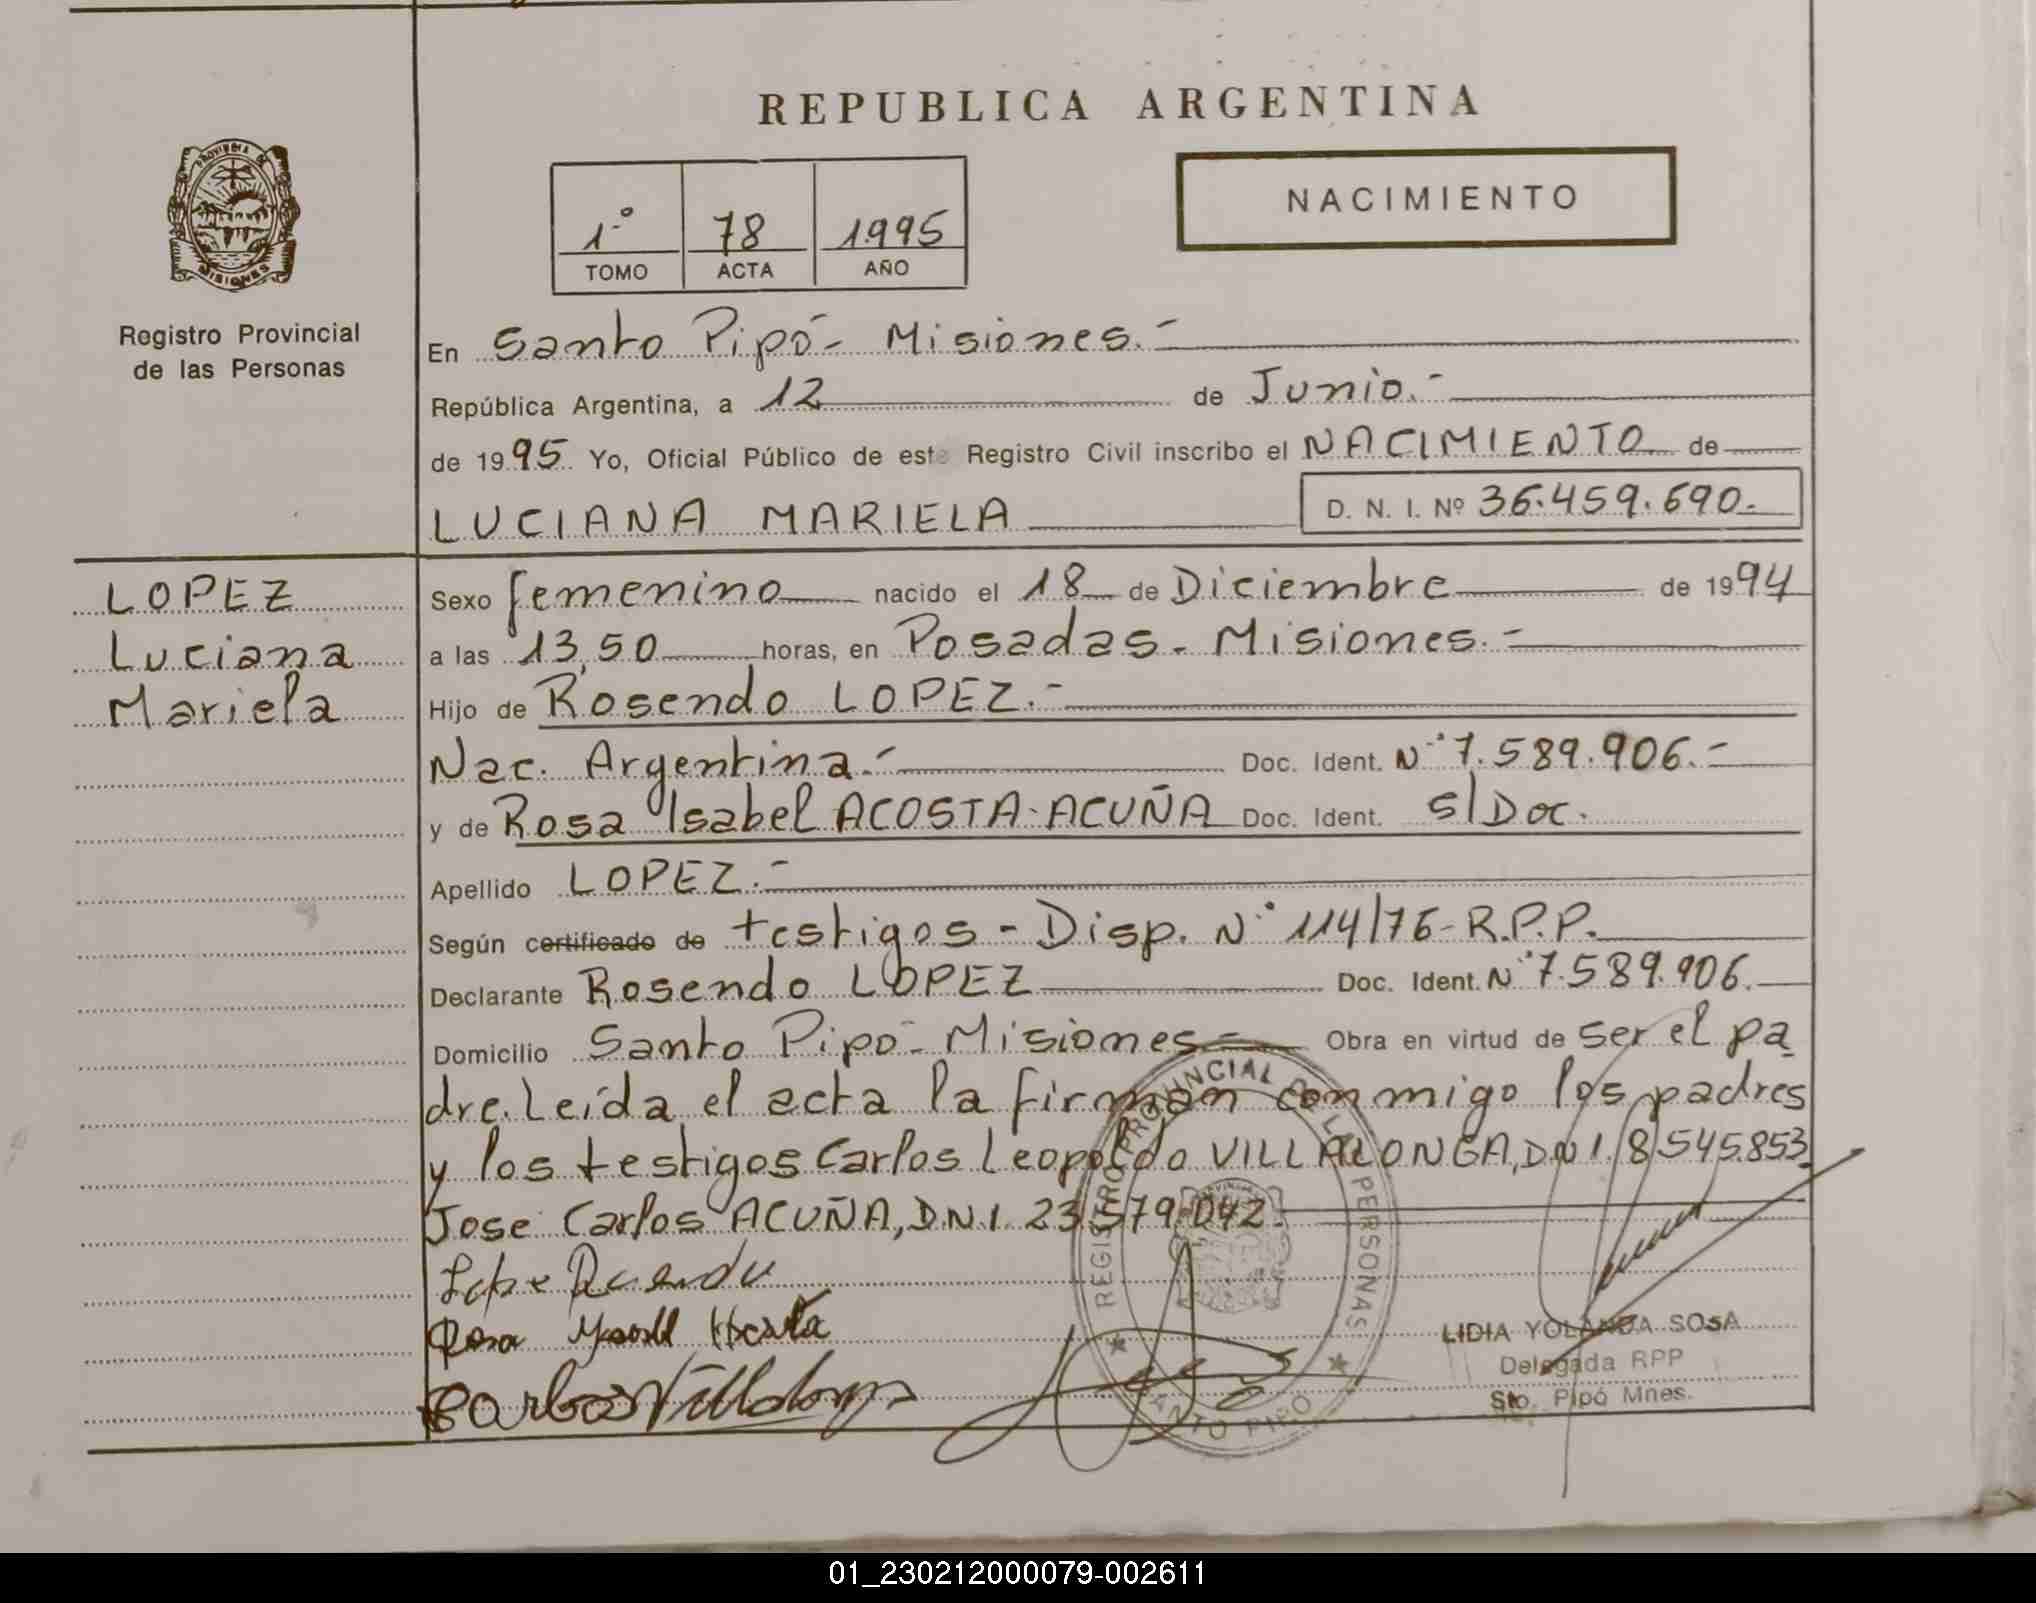 REPUBLICA ARGENTINA
PROVINCIA DE
MISIONES
Registro Provincial
de las Personas
1º 78 1995
TOMO ACTA AÑO
NACIMIENTO
En Santo Pipó - Misiones.-
República Argentina, a 12 de Junio.-
de 1995 Yo, Oficial Público de este Registro Civil inscribo el NACIMIENTO de
LUCIANA MARIELA D. N. I. Nº 36.459.690.-
LOPEZ
Luciana
Mariela
Sexo femenino nacido el 18 de Diciembre de 1994
a las 13,50 horas, en Posadas - Misiones.-
Hijo de Rosendo LOPEZ.-
Nac. Argentina.- Doc. Ident. Nº 7.589.906.-
y de Rosa Isabel ACOSTA-ACUÑA Doc. Ident. S/Doc.
Apellido LOPEZ.-
Según certificado de testigos - Disp. Nº 114/76 - R.P.P.
Declarante Rosendo LOPEZ Doc. Ident. Nº 7.589.906.
Domicilio Santo Pipó - Misiones - Obra en virtud de ser el pa
dre. Leída el acta la firman conmigo los padres
y los testigos Carlos Leopoldo VILLALONGA, DNI. 8.545.853
Jose Carlos ACUÑA, D.N.I. 23.579.042.
Lope Rosendo
Rosa Isabel Acosta
Carlos Villalonga
REGISTRO PROVINCIAL DE LAS PERSONAS
SANTO PIPO
LIDIA YOLANDA SOSA
Delegada RPP
Sto. Pipó Mnes.
01_230212000079-002611